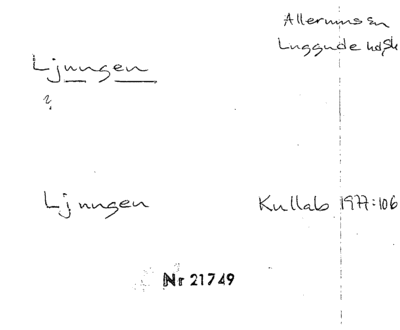 Allerums sn
Luggude hd, Sk
Ljungen
2,
Ljungen
Kullab 1977:106
Nr 21749